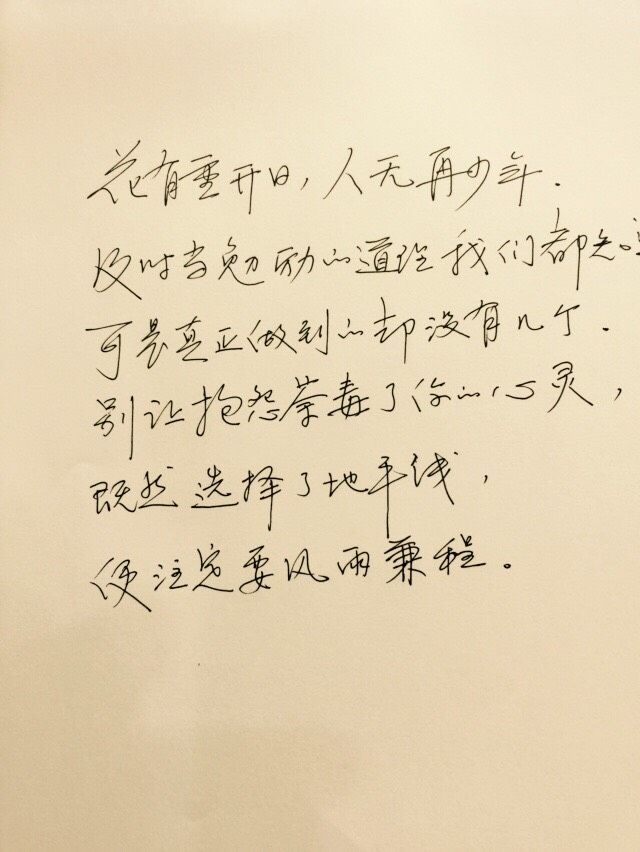 花有重开日，人无再少年.
及时当勉励的道理我们都知
可是真正做到的却没有几个.
别让抱怨荼毒了你的心灵，
既然选择了地平线，
便注定要风雨兼程。